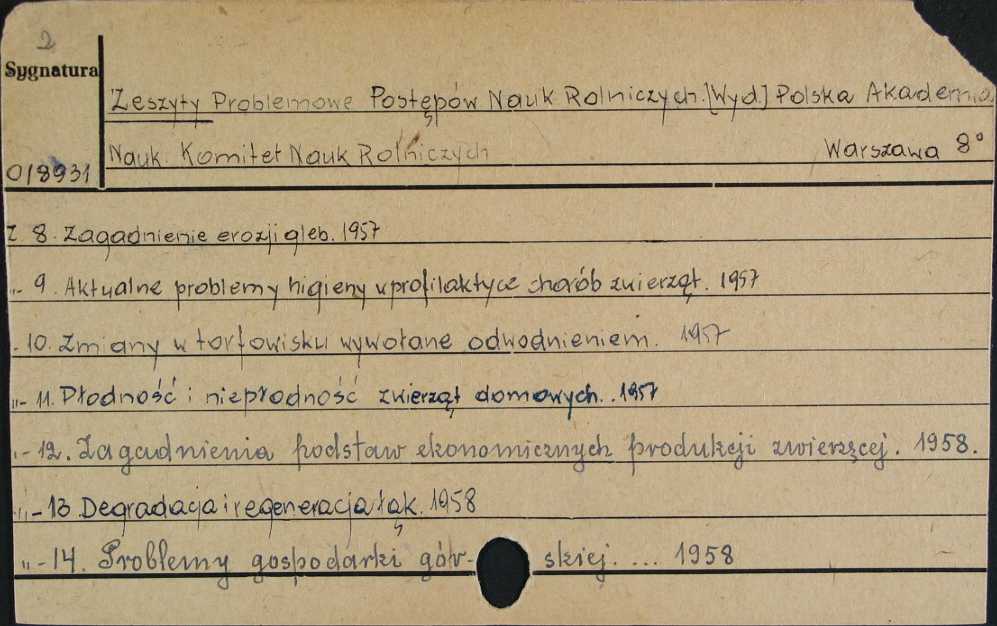 2
Sygnatura
Zeszyty Problemowe Postępów Nauk Rolniczych. [Wyd.] Polska Akademia
Nauk. Komitet Nauk Rolniczych Warszawa 8°
0/8931
Z 8. Zagadnienie erozji gleb. 1957
„- 9. Aktualne problemy higieny w profilaktyce chorób zwierząt. 1957
- 10. Zmiany w torfowisku wywołane odwodnieniem. 1957
„- 11. Płodność i niepłodność zwierząt domowych. . 1957
„- 12. Zagadnienia podstaw ekonomicznych produkcji zwierzęcej. 1958.
„- 13 Degradacja i regeneracja łąk. 1958
„- 14. Problemy gospodarki gór- skiej. ... 1958